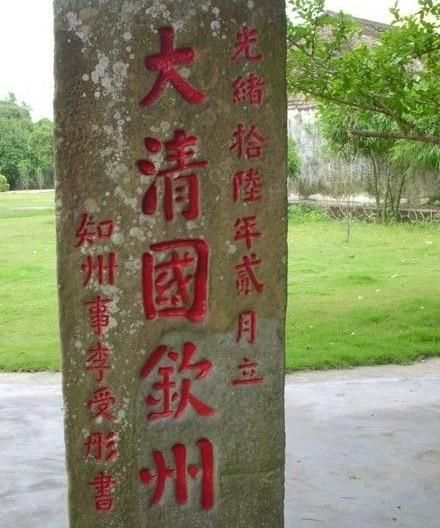 光緒拾陸年貳月立
大清國欽州
知州事李受彤書